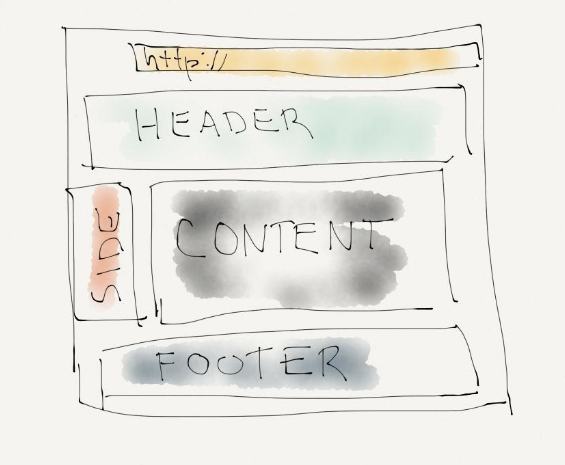 http://
HEADER
SIDE
CONTENT
FOOTER